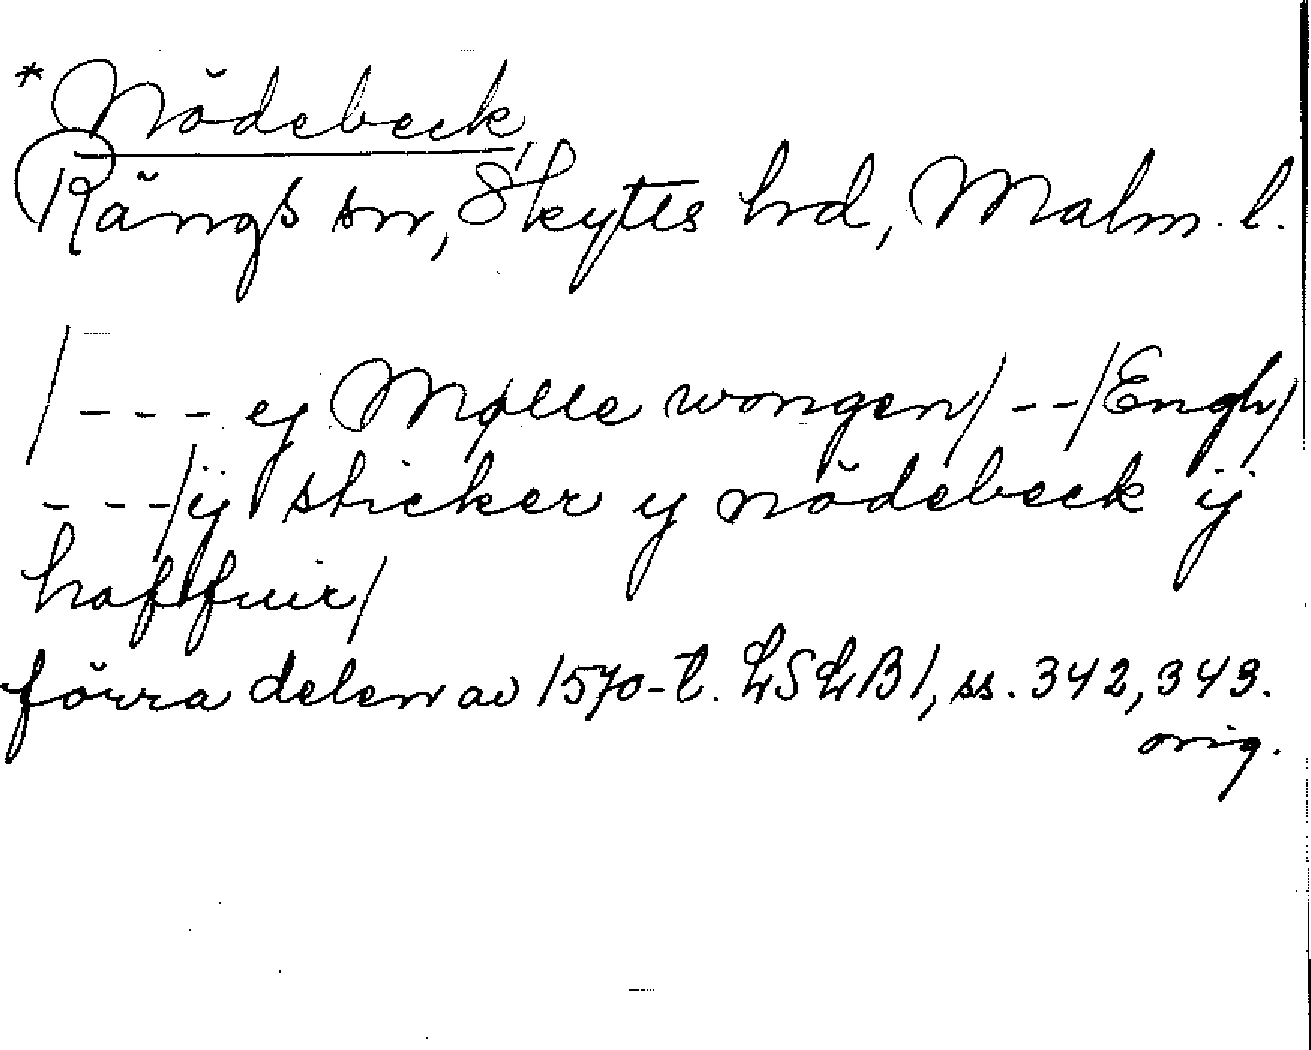 * Nödebeck
Rängs sn, Skytts hd, Malm. l.
/- - - ej Mølle wongen/ - -/Engh/
- - -/ij sticker y nödebeck ij
hoffuir/
förra delen av 1570-t. LSLB 1, ss. 342, 343.
orig.